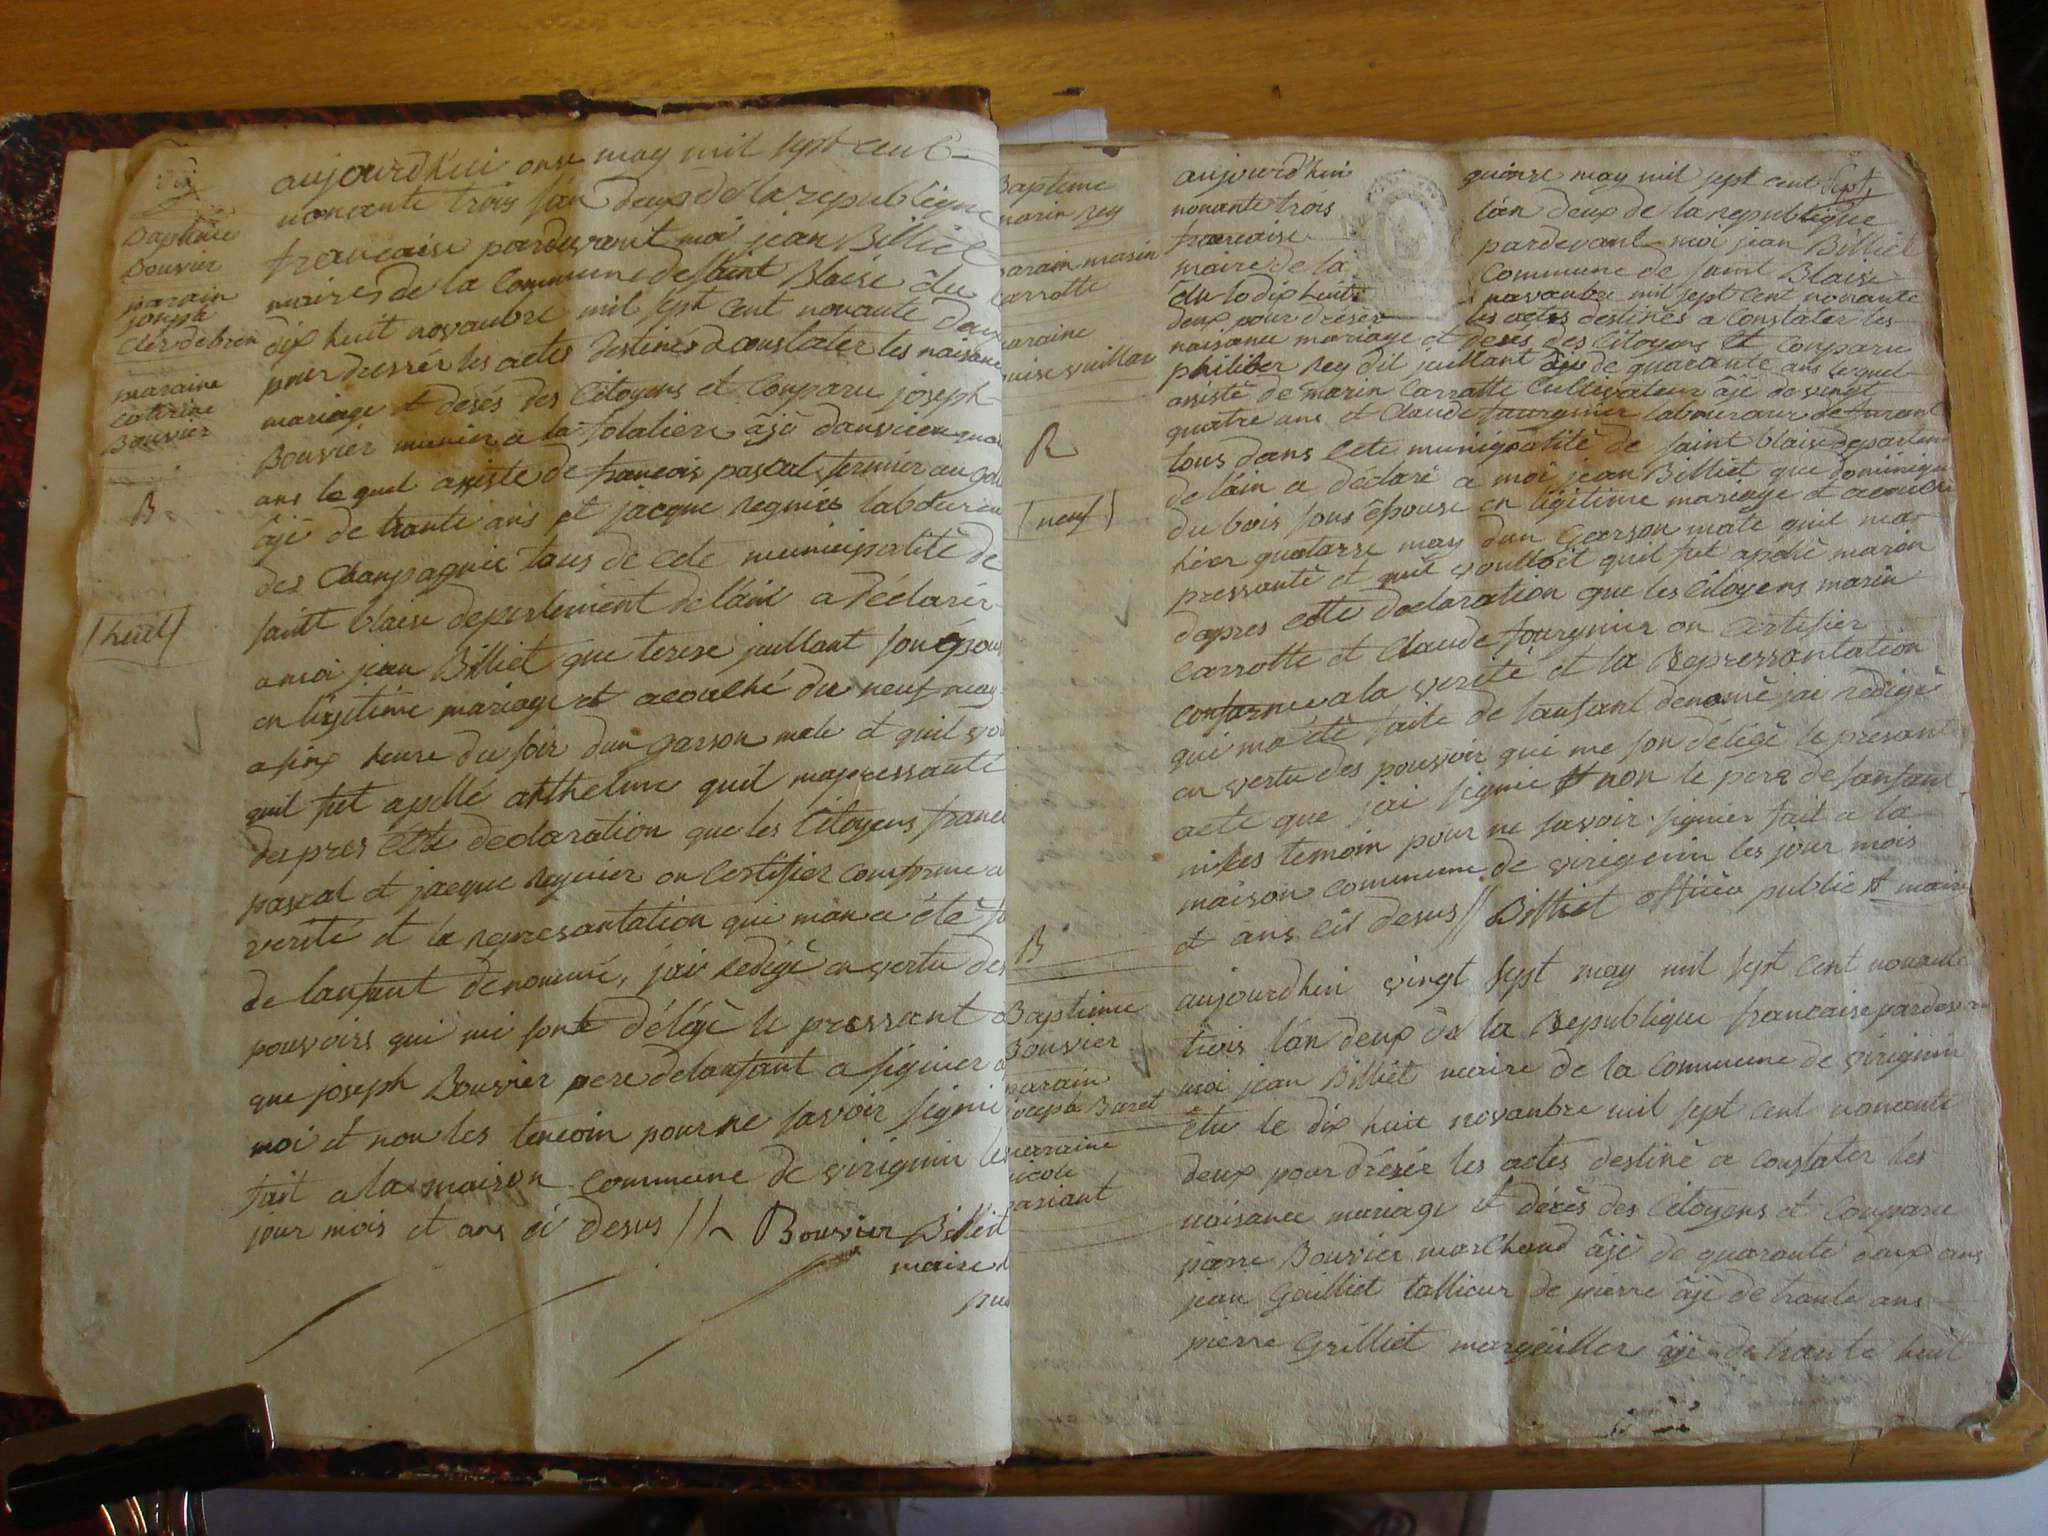 Baptême
Bouvier
parain
joseph
maraine
caterine
Bouvier
B
huit
aujourdhui onse may mil sept cent
nonante trois lan deux de la republique
francaise pardevant moi jean Billiet
maires de la Commune de saint Blaise êlu
dix huit novanbre mil sept cent nonante deux
pour dressér les actes destinés a constater les naisance
mariage et desés des Citoyens et Conparu joseph
Bouvier munier a la folatiere âjê danviron
ans le quel asiste de francois pascal fermier au
âjê de trante ans et jacque regnier laboureu
des Champagnie tous de cete municipalitê de
saint blaise departement de lain a declarér
a moi jean Billiet que terese juillant son êpous
en ligitime mariage et acouché du neuf may
a six heure du soir dun garson male et quil vou
quil fut apellé anthelme quil mapressanté
despres cete declaration que les Citoyens franco
pascal et jacque regnier on Certifier conforme a
verité et la represantation qui man a été fa
de lanfant denommé, jai redigê an vertu des
pouvoirs qui mi sont délégé le pressant a
que joseph Bouvier pere delanfant a signier a
moi et non les temoin pour ne savoir signié
fait a la maison commune de virignin les
jour mois et ans ci desus // Bouvier Billiet
maire
pu
Baptême
marin rey
parain marin
Carrotte
maraine
B
neuf
aujourdhui quinse may mil sept cent
nonante trois lan deux de la republique
francaise pardevant moi jean Billiet
maire de la Commune de saint Blaise
êlu le dix huit novanbre mil sept cent nonante
deux pour dréser les actes destinés a Constater les
naisance mariage et desés des Citoyens Et Conparu
philiber rey dit juillant âjê de quarante ans lequel
asistê de marin Carrotte Cultivateur âjê de vingt
quatre ans et Claude fourgnier laboureur
tous dans cete municipalitê de saint blaise departem
de lain a déclaré a moi jean Billiet que dominique
du bois sons êpouse en légitime mariage et acouché
hier quatorse may dun Garson male quil ma
pressanté et quil voulloit quil fut apélê marin
dapres cette declaration que les Citoyens marin
Carrotte et Claude fourgnier on Certifier
conforme a la verité et la Repressantation
qui ma êtê faite de lanfant denomê jai rédigê
an vertu des pouvoir qui me son délégê le présant
acte que jai signie et non le pere de lanfant
ni les temoin pour ne savoir signier fait a la
maison commune de virignin les jour mois
et ans cil desus // Billiet officier public et maire
B
Baptime
Bouvier
parain
joseph Baret
marraine
nicole
aujourdhui vingt sept may mil sept cent nonante
trois lan deux de la Republique francaise pardevan
moi jean Billiet maire de la Commune de virignin
êlu le dix huit novanbre mil sept cent nonante
deux pour drésér les actes destiné a constater les
naisance mariage et décès des Citoyens et Conparu
pierre Bouvier marchand âjê de quarante deux ans
jean Gailliet tallieur de pierre âjê de trante ans
pierre Grilliet margeuiller âjê de trante huit